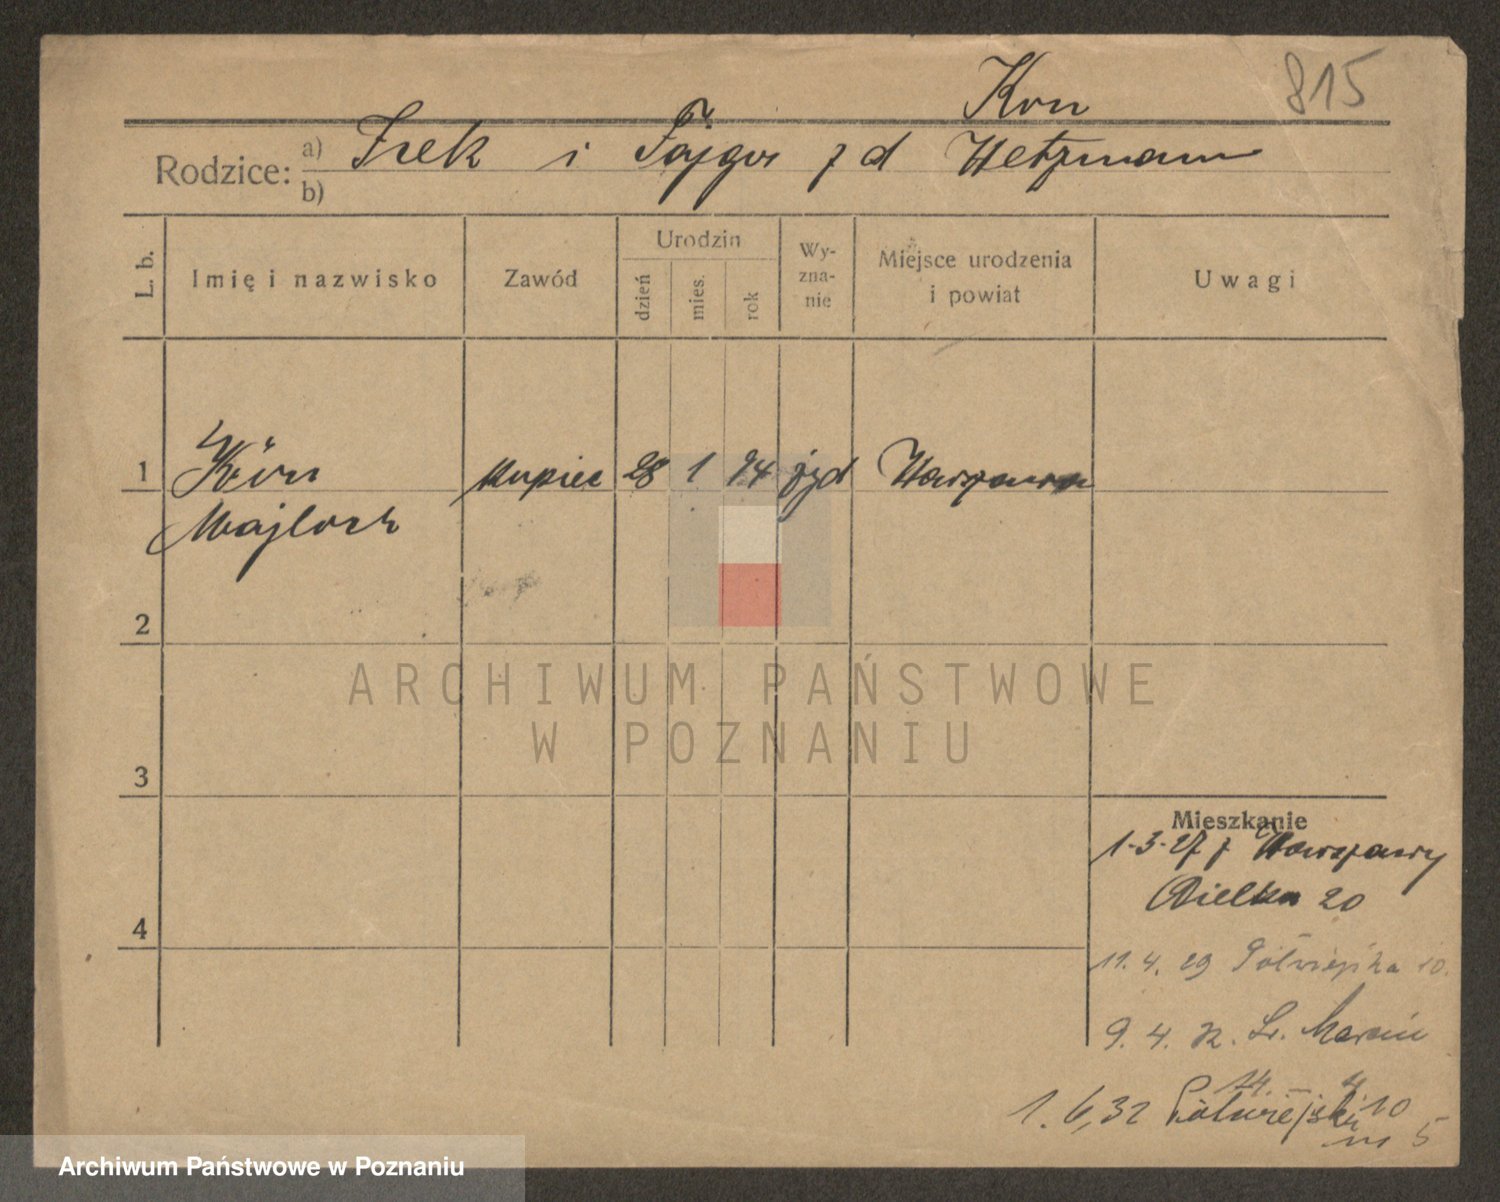 815
Kon
Rodzice: a) Icek i Fajga z d Wetzmann
b)
L. b.
Imię i nazwisko
Zawód
Urodzin
dzień
mies.
rok
Wy-
zna-
nie
Miejsce urodzenia
i powiat
Uwagi
1 Kon kupiec 28 1 94 żyd Warszawa
Majloch
2
ARCHIWUM PAŃSTWOWE
W POZNANIU
3
Mieszkanie
1-3-27 z Warszawy
Wielka 20
4
11. 4. 29 Półwiejska 10.
9. 4. 32. Św. Marcin
74.
1. 6, 32 Półwiejska 10
m 5
Archiwum Państwowe w Poznaniu